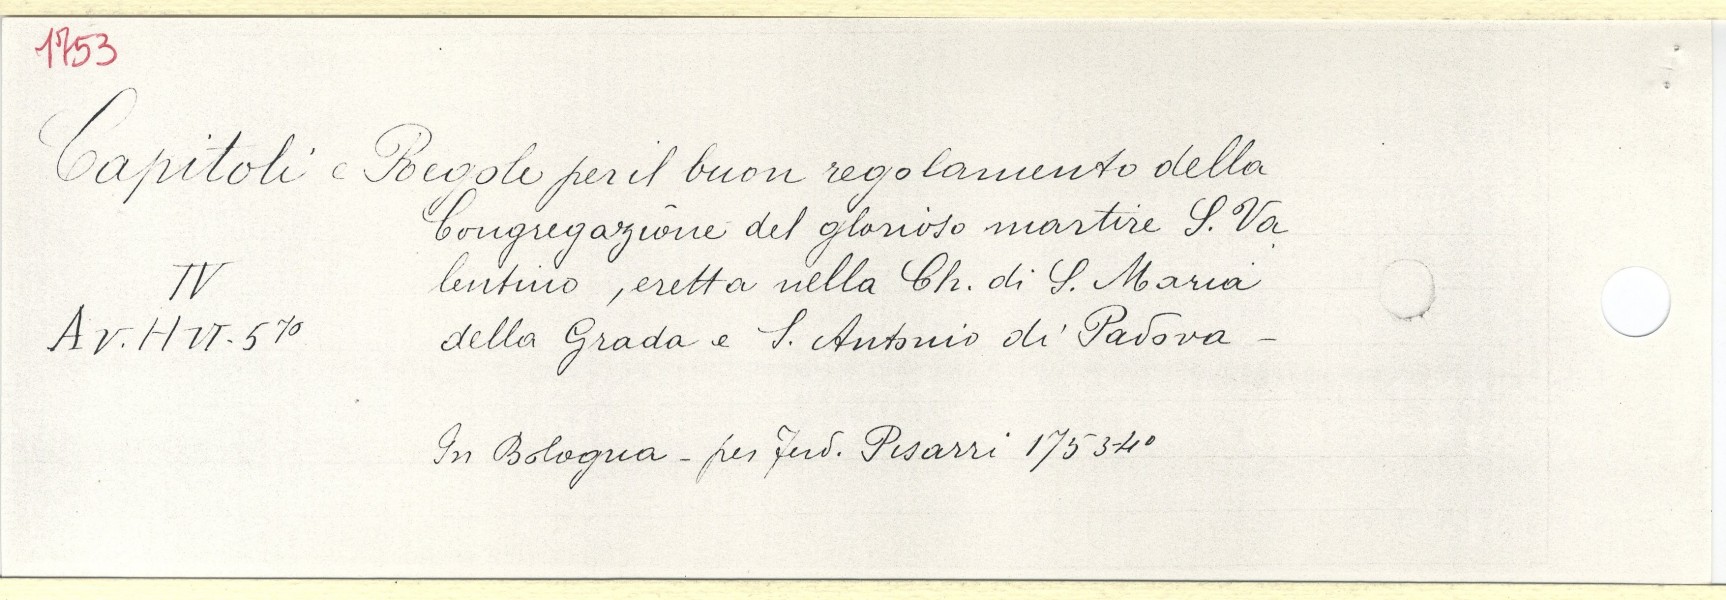 1753
Capitoli e Regole per il buon regolamento della
Congregazione del glorioso martire S. Va
lentino, eretta nella Ch. di S. Maria
della Grada e S. Antonio di Padova -
IV
AV. H VI. 570
In Bologna - per Ferd. Pisarri 1753-4º